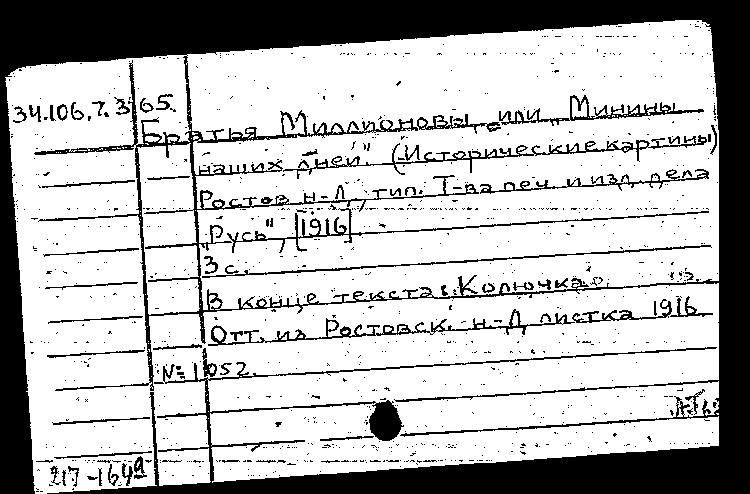 34.106.7.365.
Братья Миллионовы, или „Минины
наших дней." (Исторические картины)
Ростов н-Д, тип. Т-ва печ. и изд. дела
„Русь", [1916]
3 с.
В конце текста: Колючка.
Отт. из Ростовск. н-Д листка 1916
№ 1052.
217-164а